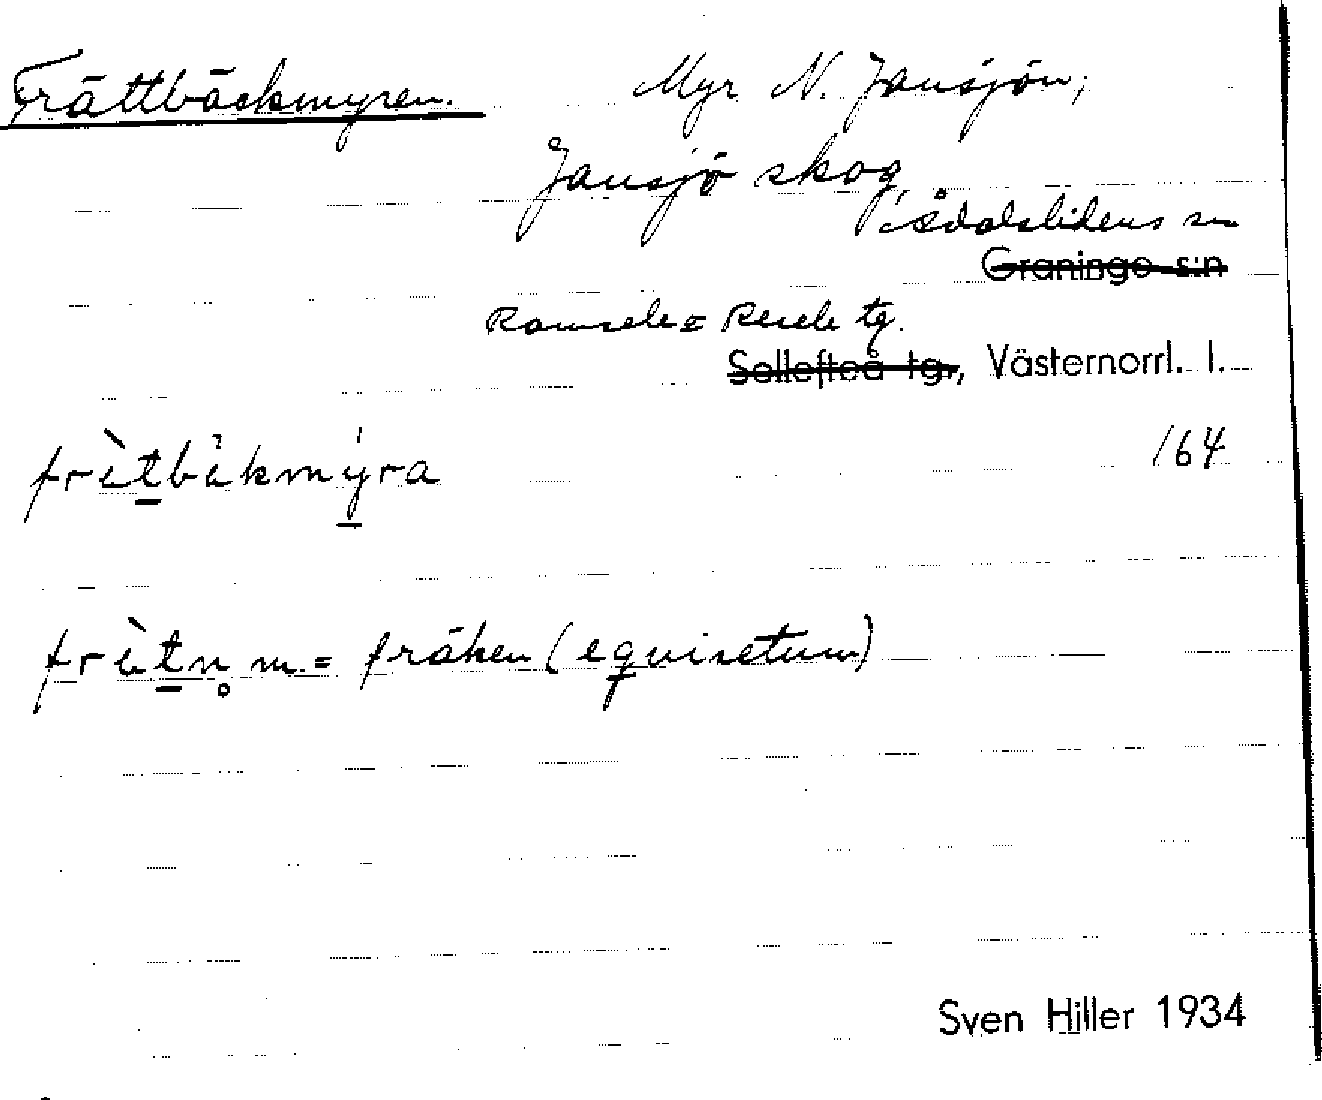 Frättbäckmyren. Myr N. Jansjön,
Jansjö skog,
i Ådalslidens sn
Graninge s:n
Ramsele = Resele tg.
Sollefteå tg., Västernorrl. l.
frètbèkmýra 164
frètn̥ m. = fräken (equisetum)
Sven Hiller 1934